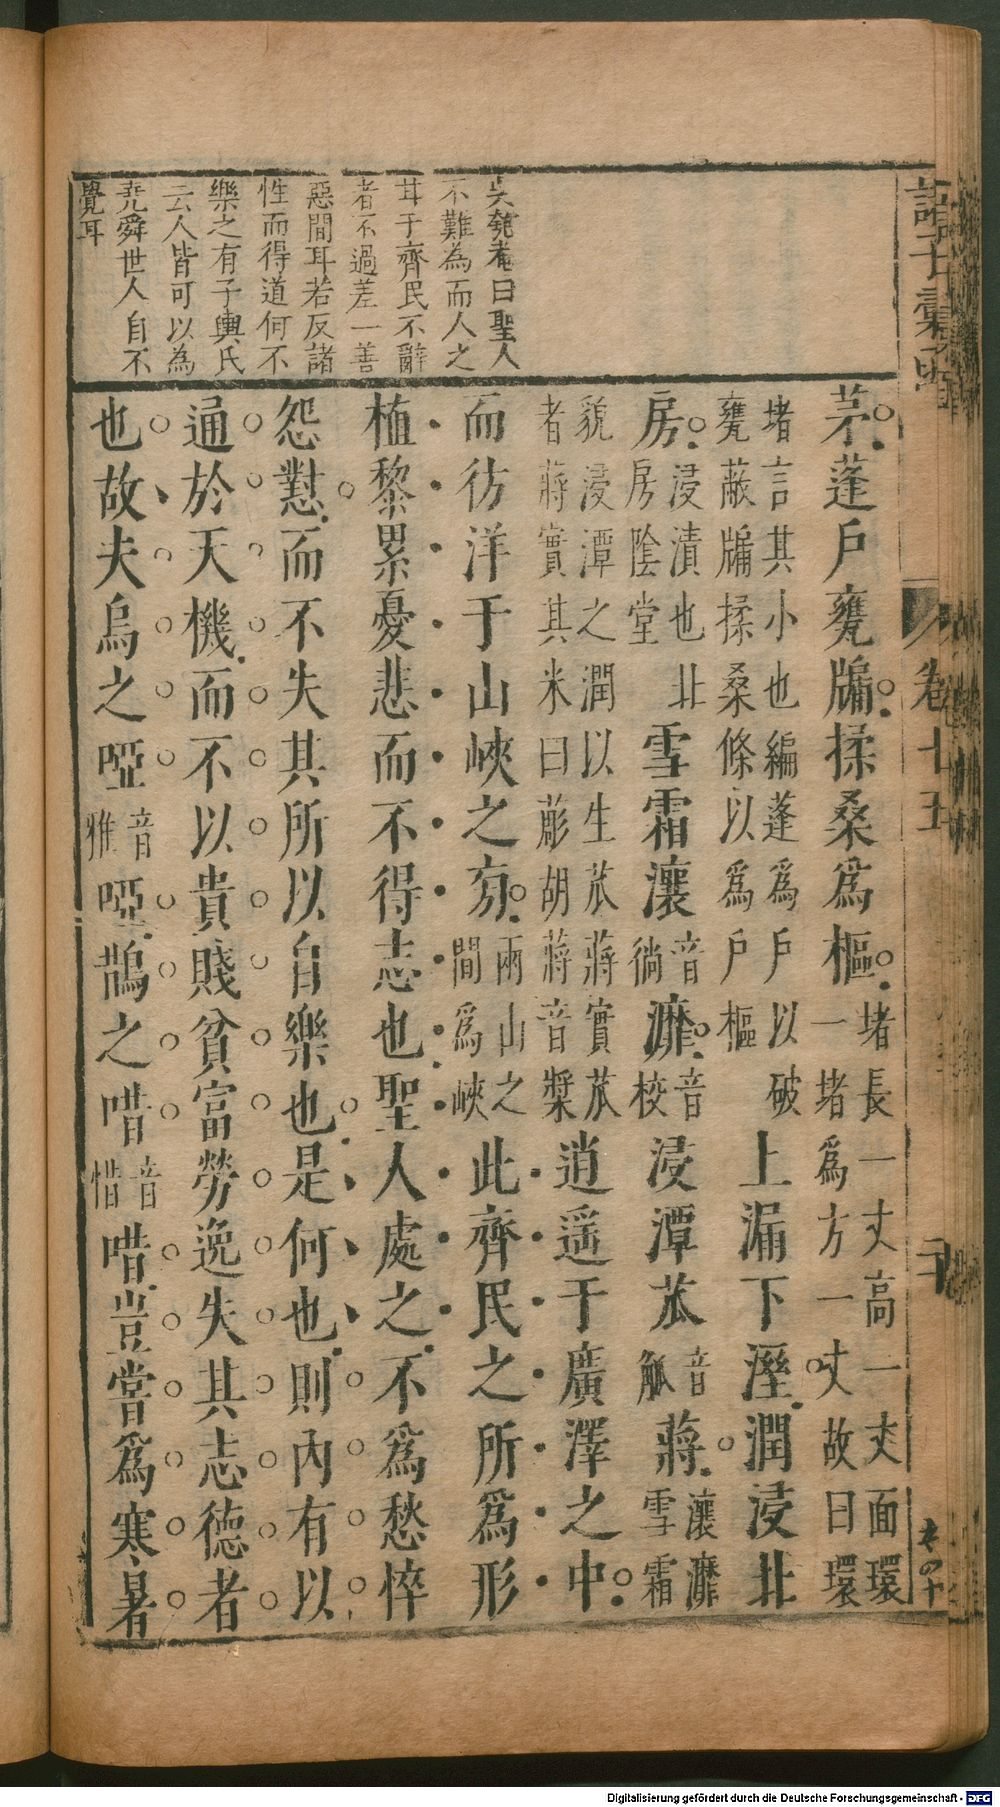 吳匏菴曰聖人
不難為而人之
耳于齊民不辭
者不過差一善
惡間耳若反諸
性而得道何不
樂之有子輿氏
云人皆可以為
堯舜世人自不
覺耳
茅蓬戶甕牖揉桑爲樞堵長一丈高一丈面環
一堵爲方一丈故曰環
堵言其小也編蓬爲戶以破
甕蔽牖揉桑條以爲戶樞
上漏下溼潤浸北
房浸漬也北
房陰堂
雪霜瀼音
徜
灖音
校
浸潭苽音
觚
蔣瀼灖
雪霜
貌浸潭之潤以生苽蔣實苽
者蔣實其米曰彫胡蔣音槳
逍遥于廣澤之中
而彷洋于山峽之旁兩山之
間爲峽
此齊民之所爲形
植黎累憂悲而不得志也聖人處之不爲愁悴
怨懟而不失其所以自樂也是何也則內有以
通於天機而不以貴賤貧富勞逸失其志德者
也故夫烏之啞音
雅
啞鵲之唶音
惜
唶豈嘗爲寒暑
諸子彙
卷十五
二十
Digitalisierung gefördert durch die Deutsche Forschungsgemeinschaft - DFG